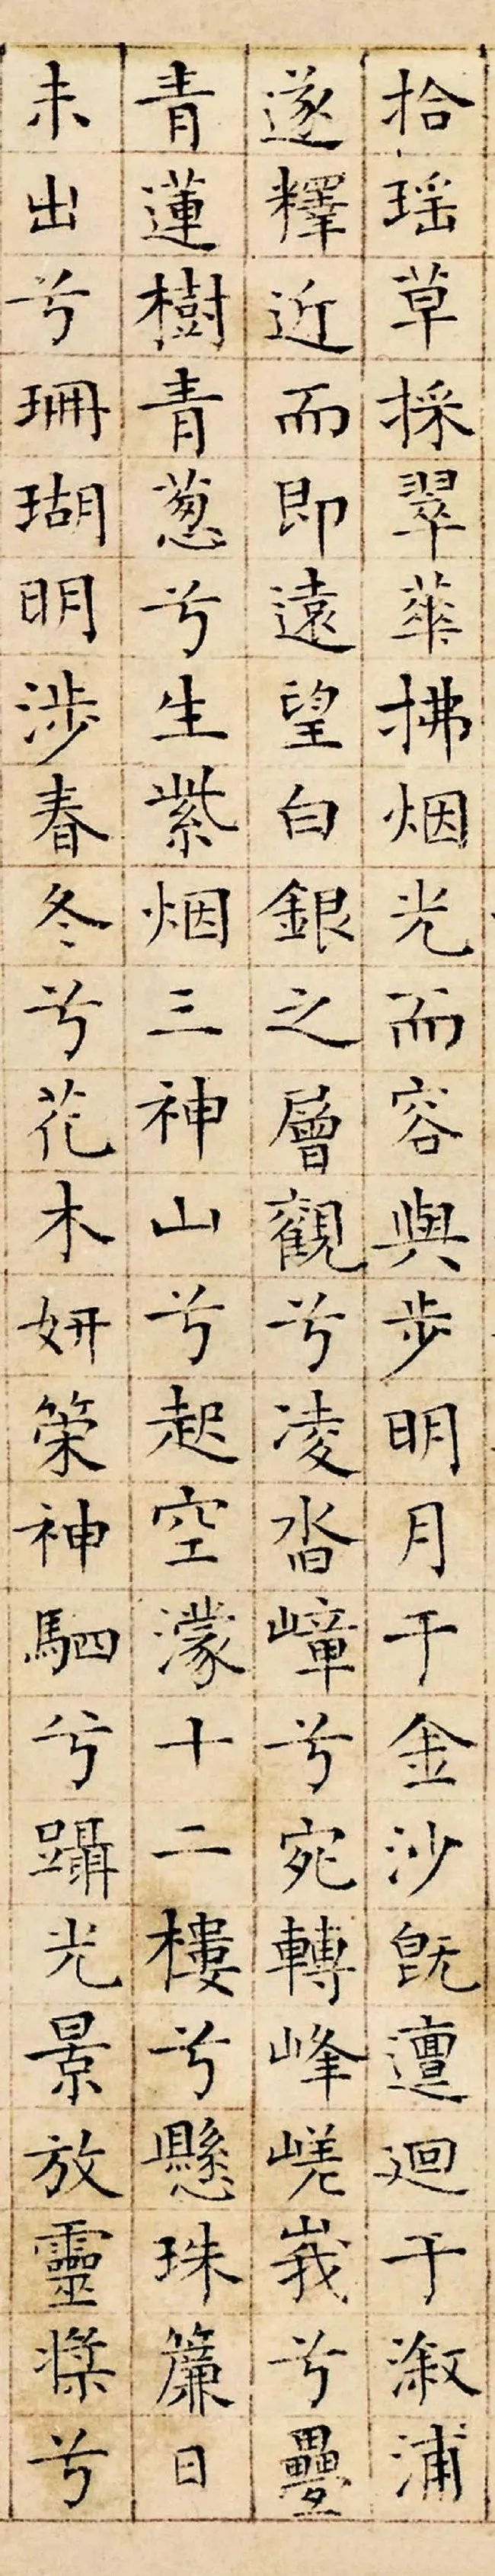 拾瑶草採翠華拂烟光而容與步明月于金沙旣邅廻于溆浦
遂釋近而即遠望白銀之層觀兮凌沓嶂兮宛轉峰嵯峩兮疊
青蓮樹青葱兮生紫烟三神山兮起空濛十二樓兮懸珠簾日
未出兮珊瑚明涉春冬兮花木妍策神駟兮躡光景放靈槳兮